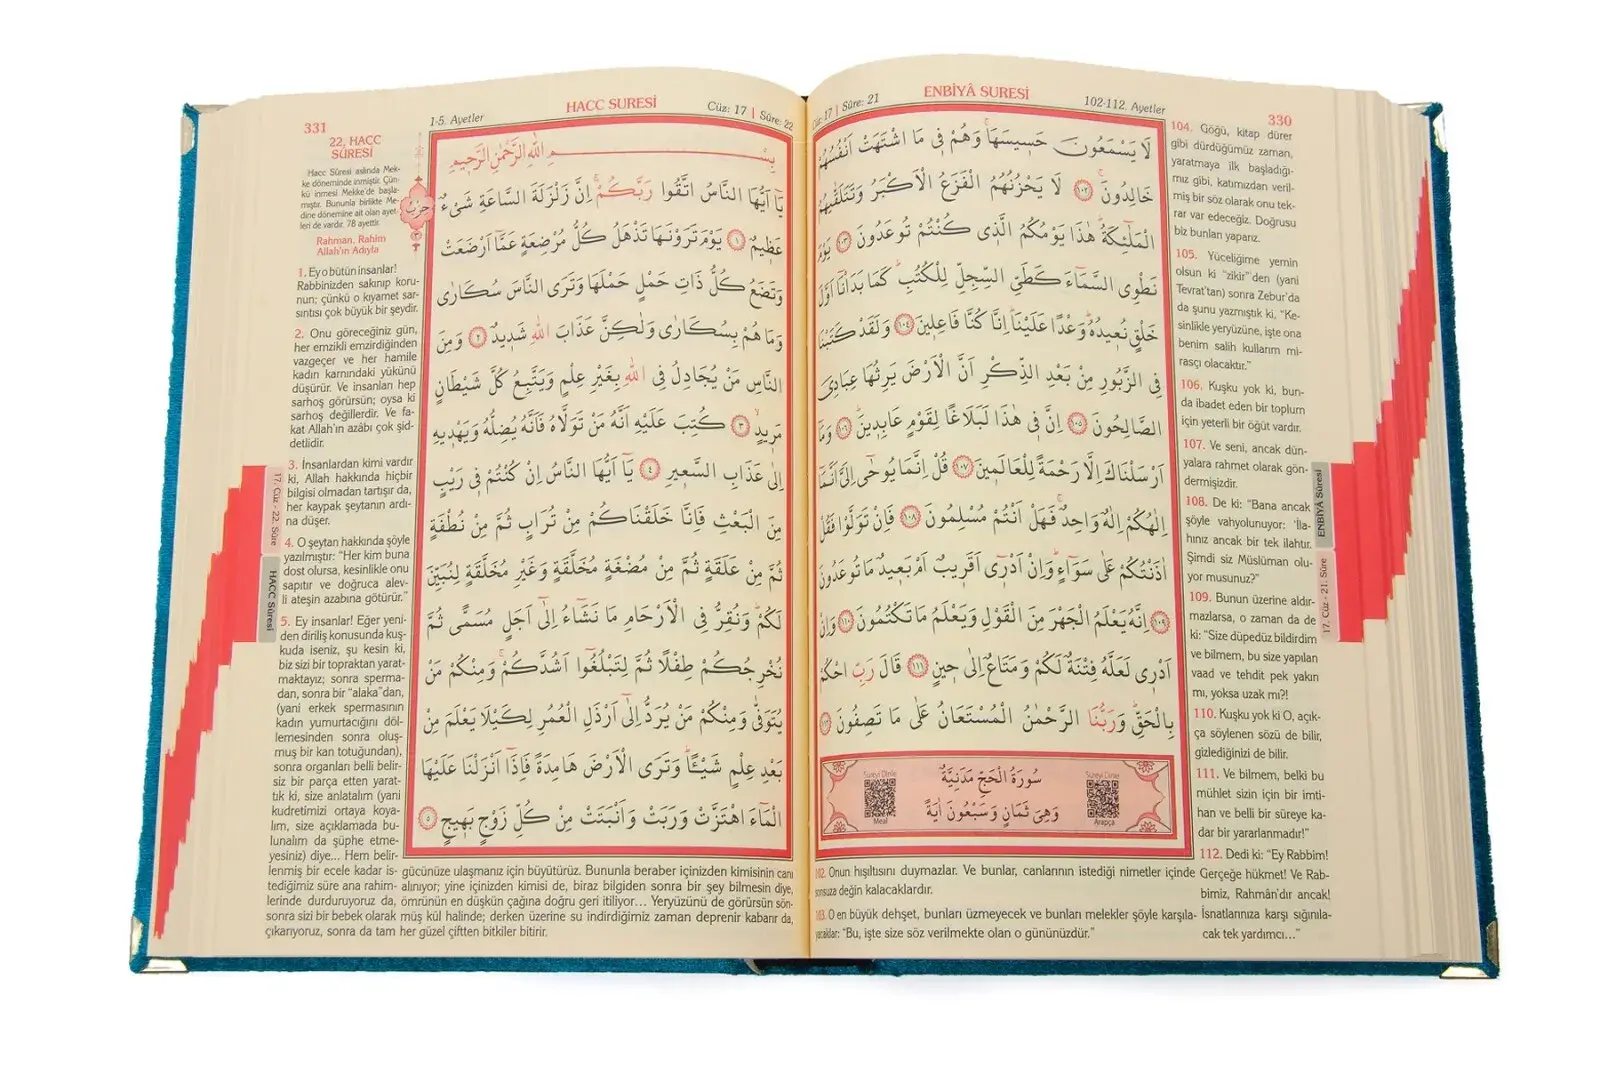 330
ENBİYÂ SURESİ
Cüz: 17 | Sûre: 21
102-112. Ayetler
لَا يَسْمَعُونَ حَسِيسَهَاۚ وَهُمْ فٖى مَا اشْتَهَتْ اَنْفُسُهُمْ
خَالِدُونَۚ ﴿١٠٢﴾ لَا يَحْزُنُهُمُ الْفَزَعُ الْاَكْبَرُ وَتَتَلَقّٰيهُمُ
الْمَلٰٓئِكَةُؕ هٰذَا يَوْمُكُمُ الَّذٖى كُنْتُمْ تُوعَدُونَ ﴿١٠٣﴾ يَوْمَ
نَطْوِى السَّمَٓاءَ كَطَىِّ السِّجِلِّ لِلْكُتُبِؕ كَمَا بَدَاْنَٓا اَوَّلَ
خَلْقٍ نُعٖيدُهُؕ وَعْدًا عَلَيْنَاؕ اِنَّا كُنَّا فَاعِلٖينَ ﴿١٠٤﴾ وَلَقَدْ كَتَبْنَا
فِى الزَّبُورِ مِنْ بَعْدِ الذِّكْرِ اَنَّ الْاَرْضَ يَرِثُهَا عِبَادِىَ
الصَّالِحُونَ ﴿١٠٥﴾ اِنَّ فٖى هٰذَا لَبَلَاغًا لِقَوْمٍ عَابِدٖينَؕ ﴿١٠٦﴾ وَمَٓا
اَرْسَلْنَاكَ اِلَّا رَحْمَةً لِلْعَالَمٖينَ ﴿١٠٧﴾ قُلْ اِنَّمَا يُوحٰٓى اِلَىَّ اَنَّمَٓا
اِلٰهُكُمْ اِلٰهٌ وَاحِدٌۚ فَهَلْ اَنْتُمْ مُسْلِمُونَ ﴿١٠٨﴾ فَاِنْ تَوَلَّوْا فَقُلْ
اٰذَنْتُكُمْ عَلٰى سَوَٓاءٍؕ وَاِنْ اَدْرٖٓى اَقَرٖيبٌ اَمْ بَعٖيدٌ مَا تُوعَدُونَ
﴿١٠٩﴾ اِنَّهُ يَعْلَمُ الْجَهْرَ مِنَ الْقَوْلِ وَيَعْلَمُ مَا تَكْتُمُونَ ﴿١١٠﴾ وَاِنْ
اَدْرٖى لَعَلَّهُ فِتْنَةٌ لَكُمْ وَمَتَاعٌ اِلٰى حٖينٍ ﴿١١١﴾ قَالَ رَبِّ احْكُمْ
بِالْحَقِّؕ وَرَبُّنَا الرَّحْمٰنُ الْمُسْتَعَانُ عَلٰى مَا تَصِفُونَ ﴿١١٢﴾
Sureyi Dinle
Meal
سُورَةُ الْحَجِّ مَدَنِيَّةٌ
وَهِىَ ثَمَانٍ وَسَبْعُونَ اٰيَةً
Sureyi Dinle
Arapça
102. Onun hışıltısını duymazlar. Ve bunlar, canlarının istediği nimetler içinde
sonsuza değin kalacaklardır.
103. O en büyük dehşet, bunları üzmeyecek ve bunları melekler şöyle karşıla-
yacaklar: "Bu, işte size söz verilmekte olan o gününüzdür."
104. Göğü, kitap dürer
gibi dürdüğümüz zaman,
yaratmaya ilk başladığı-
mız gibi, katımızdan veril-
miş bir söz olarak onu tek-
rar var edeceğiz. Doğrusu
biz bunları yaparız.
105. Yüceliğime yemin
olsun ki "zikir"den (yani
Tevrat'tan) sonra Zebur'da
da şunu yazmıştık ki, "Ke-
sinlikle yeryüzüne, işte ona
benim salih kullarım mi-
rasçı olacaktır."
106. Kuşku yok ki, bun-
da ibadet eden bir toplum
için yeterli bir öğüt vardır.
107. Ve seni, ancak dün-
yalara rahmet olarak gön-
dermişizdir.
108. De ki: "Bana ancak
şöyle vahyolunuyor: 'İla-
hınız ancak bir tek ilahtır.
Şimdi siz Müslüman olu-
yor musunuz?"
109. Bunun üzerine aldır-
mazlarsa, o zaman da de
ki: "Size düpedüz bildirdim
ve bilmem, bu size yapılan
vaad ve tehdit pek yakın
mı, yoksa uzak mı?!
110. Kuşku yok ki O, açık-
ça söylenen sözü de bilir,
gizlediğinizi de bilir.
111. Ve bilmem, belki bu
mühlet sizin için bir imti-
han ve belli bir süreye ka-
dar bir yararlanmadır!"
112. Dedi ki: "Ey Rabbim!
Gerçeğe hükmet! Ve Rab-
bimiz, Rahmân'dır ancak!
İsnatlarınıza karşı sığınıla-
cak tek yardımcı..."
ENBİYÂ Sûresi
17. Cüz - 21. Sûre
331
HACC SURESİ
Cüz: 17 | Sûre: 22
1-5. Ayetler
22. HACC
SÛRESİ
Hacc Sûresi aslında Mek-
ke döneminde inmiştir. Çün-
kü inmesi Mekke'de başla-
mıştır. Bununla birlikte Me-
dine dönemine ait olan ayet-
leri de vardır. 78 ayettir.
Rahman, Rahim
Allah'ın Adıyla
حِزْبٌ
بِسْمِ اللّٰهِ الرَّحْمٰنِ الرَّحٖيمِ
يَٓا اَيُّهَا النَّاسُ اتَّقُوا رَبَّكُمْۚ اِنَّ زَلْزَلَةَ السَّاعَةِ شَىْءٌ
عَظٖيمٌ ﴿١﴾ يَوْمَ تَرَوْنَهَا تَذْهَلُ كُلُّ مُرْضِعَةٍ عَمَّٓا اَرْضَعَتْ
وَتَضَعُ كُلُّ ذَاتِ حَمْلٍ حَمْلَهَا وَتَرَى النَّاسَ سُكَارٰى
وَمَا هُمْ بِسُكَارٰى وَلٰكِنَّ عَذَابَ اللّٰهِ شَدٖيدٌ ﴿٢﴾ وَمِنَ
النَّاسِ مَنْ يُجَادِلُ فِى اللّٰهِ بِغَيْرِ عِلْمٍ وَيَتَّبِعُ كُلَّ شَيْطَانٍ
مَرٖيدٍۙ ﴿٣﴾ كُتِبَ عَلَيْهِ اَنَّهُ مَنْ تَوَلَّاهُ فَاَنَّهُ يُضِلُّهُ وَيَهْدٖيهِ
اِلٰى عَذَابِ السَّعٖيرِ ﴿٤﴾ يَٓا اَيُّهَا النَّاسُ اِنْ كُنْتُمْ فٖى رَيْبٍ
مِنَ الْبَعْثِ فَاِنَّا خَلَقْنَاكُمْ مِنْ تُرَابٍ ثُمَّ مِنْ نُطْفَةٍ
ثُمَّ مِنْ عَلَقَةٍ ثُمَّ مِنْ مُضْغَةٍ مُخَلَّقَةٍ وَغَيْرِ مُخَلَّقَةٍ لِنُبَيِّنَ
لَكُمْؕ وَنُقِرُّ فِى الْاَرْحَامِ مَا نَشَٓاءُ اِلٰٓى اَجَلٍ مُسَمًّى ثُمَّ
نُخْرِجُكُمْ طِفْلًا ثُمَّ لِتَبْلُغُٓوا اَشُدَّكُمْۚ وَمِنْكُمْ مَنْ
يُتَوَفّٰى وَمِنْكُمْ مَنْ يُرَدُّ اِلٰٓى اَرْذَلِ الْعُمُرِ لِكَيْلَا يَعْلَمَ مِنْ
بَعْدِ عِلْمٍ شَيْـًٔاؕ وَتَرَى الْاَرْضَ هَامِدَةً فَاِذَٓا اَنْزَلْنَا عَلَيْهَا
الْمَٓاءَ اهْتَزَّتْ وَرَبَتْ وَاَنْبَتَتْ مِنْ كُلِّ زَوْجٍ بَهٖيجٍ ﴿٥﴾
1. Ey o bütün insanlar!
Rabbinizden sakınıp koru-
nun; çünkü o kıyamet sar-
sıntısı çok büyük bir şeydir.
2. Onu göreceğiniz gün,
her emzikli emzirdiğinden
vazgeçer ve her hamile
kadın karnındaki yükünü
düşürür. Ve insanları hep
sarhoş görürsün; oysa ki
sarhoş değillerdir. Ve fa-
kat Allah'ın azâbı çok şid-
detlidir.
3. İnsanlardan kimi vardır
ki, Allah hakkında hiçbir
bilgisi olmadan tartışır da,
her kaypak şeytanın ardı-
na düşer.
4. O şeytan hakkında şöyle
yazılmıştır: "Her kim buna
dost olursa, kesinlikle onu
sapıtır ve doğruca alev-
li ateşin azabına götürür."
5. Ey insanlar! Eğer yeni-
den diriliş konusunda kuş-
kuda iseniz, şu kesin ki,
biz sizi bir topraktan yarat-
maktayız; sonra sperma-
dan, sonra bir "alaka"dan,
(yani erkek spermasının
kadın yumurtacığını döl-
lemesinden sonra oluş-
muş bir kan totuğundan),
sonra organları belli belir-
siz bir parça etten yarat-
tık ki, size anlatalım (yani
kudretimizi ortaya koya-
lım, size açıklamada bu-
lunalım da şüphe etme-
yesiniz) diye... Hem belir-
lenmiş bir ecele kadar is-
tediğimiz süre ana rahim-
lerinde durduruyoruz da,
sonra sizi bir bebek olarak
çıkarıyoruz, sonra da tam
gücünüze ulaşmanız için büyütürüz. Bununla beraber içinizden kimisinin canı
alınıyor; yine içinizden kimisi de, biraz bilgiden sonra bir şey bilmesin diye,
ömrünün en düşkün çağına doğru geri itiliyor... Yeryüzünü de görürsün sön-
müş kül halinde; derken üzerine su indirdiğimiz zaman deprenir kabarır da,
her güzel çiftten bitkiler bitirir.
17. Cüz - 22. Sûre
HACC Sûresi